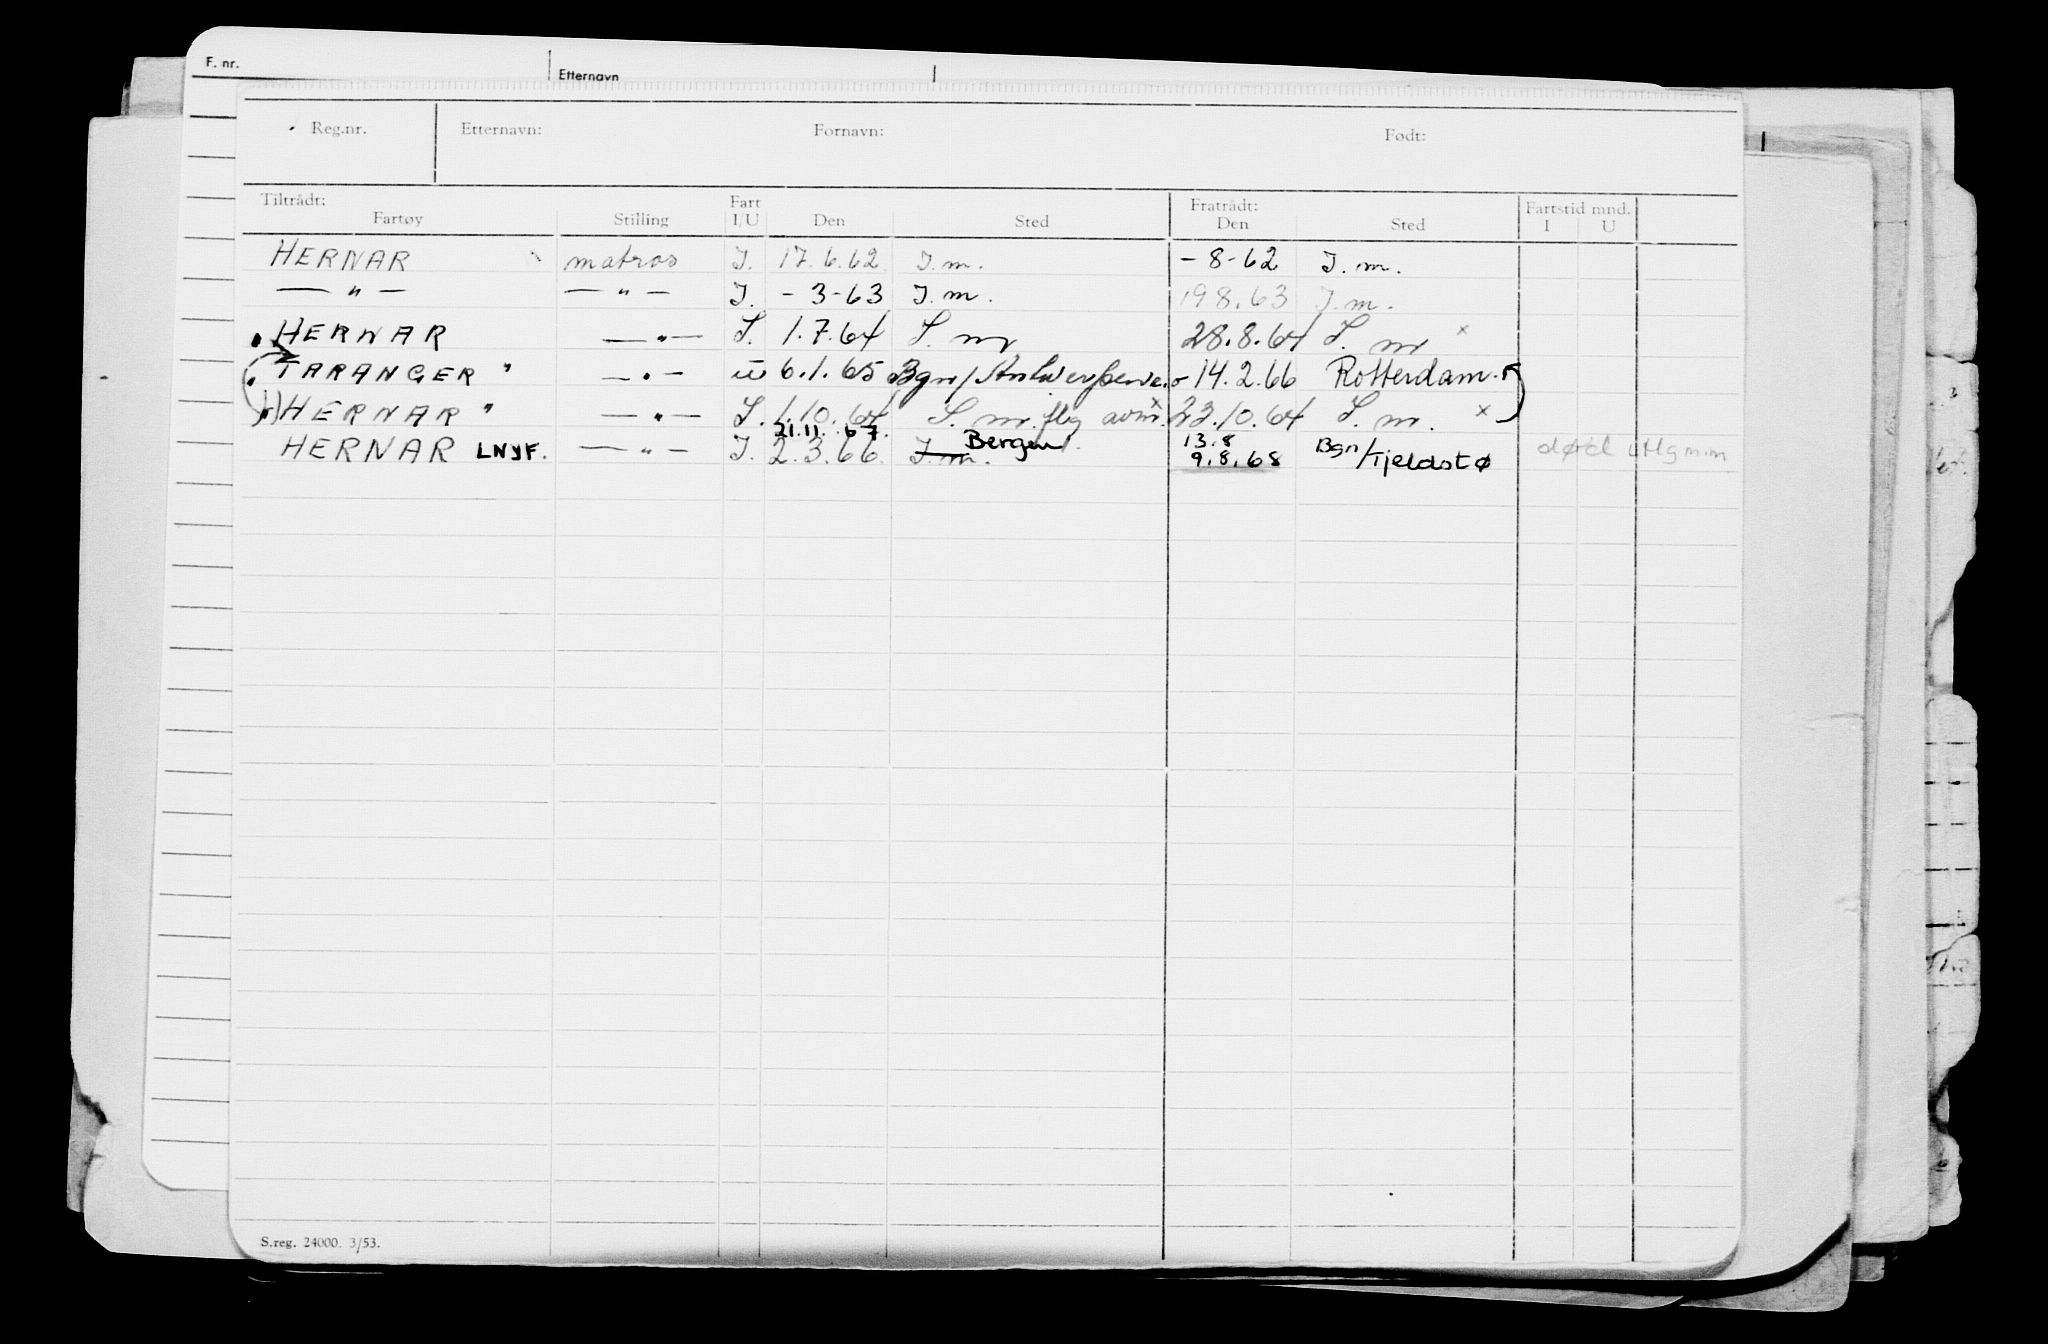 F. nr. Etternavn
Reg.nr. Etternavn: Fornavn: Født:
Tiltrådt: Fartøy Stilling Fart I/U Den Sted Fratrådt: Den Sted Fartstid mnd. I U
HERNAR matros I. 17.6.62 I.m. - 8-62 I.m.
— " — — " — I. - 3-63 I.m. 19.8.63 I.m.
HERNAR — " — I. 1.7.64 I. m 28.8.64 I. m x
TARANGER " — " — u 6.1.65 Bgn/ 14.2.66 Rotterdam
HERNAR " — " — I. 1.10.64 I. m. 23.10.64 I. m. x
21.11.67. Bergen 13.8
HERNAR LNYF. — " — I. 2.3.66. I.m. 9.8.68 Bgn/Kjeldstø
S.reg. 24000. 3/53.